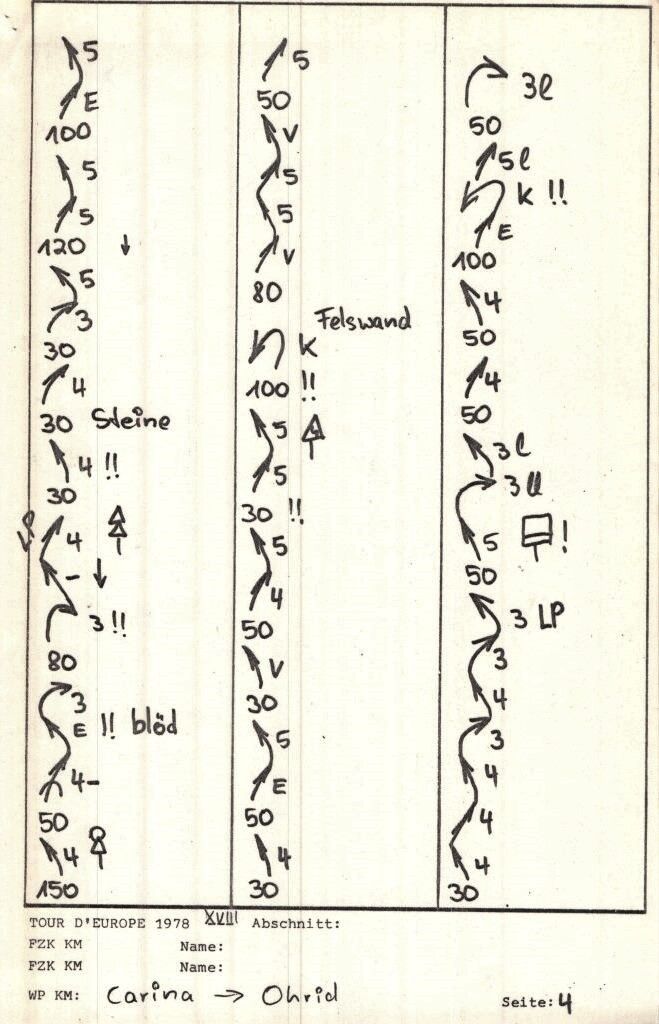 5
E
100
5
5
120 ↓
5
3
30
4
30 Steine
4 !!
30
4
- ↓
3 !!
80
3
E !! blöd
4-
50
4
150
5
50
V
5
5
V
80
Felswand
K
100 !!
5
5
30 !!
5
4
50
V
30
5
E
50
4
30
3l
50
5l
K !!
E
100
4
50
4
50
3l
3ll
5 !
50
3 LP
3
4
3
4
4
4
30
TOUR D'EUROPE 1978 XVIII Abschnitt:
FZK KM Name:
FZK KM Name:
WP KM: Carina → Ohrid Seite: 4